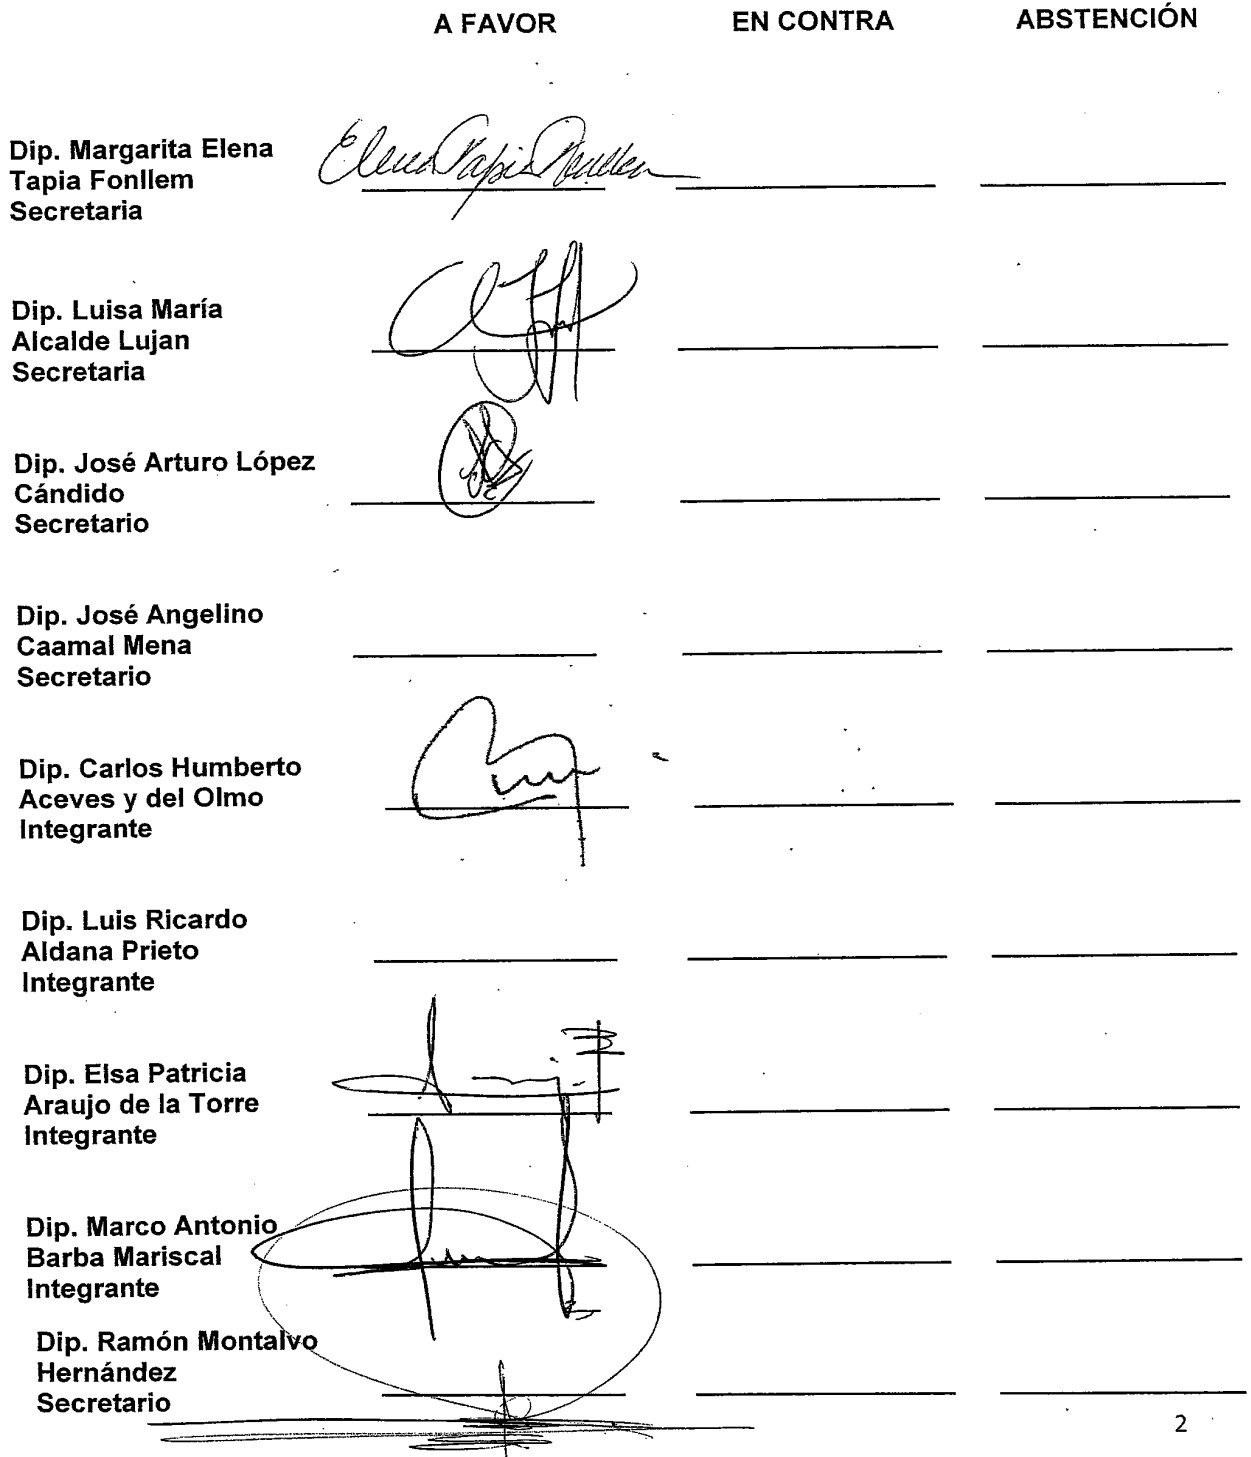 A FAVOR EN CONTRA ABSTENCIÓN
Dip. Margarita Elena
Tapia Fonllem
Secretaria
Elena Tapia Fonllem
Dip. Luisa María
Alcalde Lujan
Secretaria
Dip. José Arturo López
Cándido
Secretario
Dip. José Angelino
Caamal Mena
Secretario
Dip. Carlos Humberto
Aceves y del Olmo
Integrante
Dip. Luis Ricardo
Aldana Prieto
Integrante
Dip. Elsa Patricia
Araujo de la Torre
Integrante
Dip. Marco Antonio
Barba Mariscal
Integrante
Dip. Ramón Montalvo
Hernández
Secretario
2